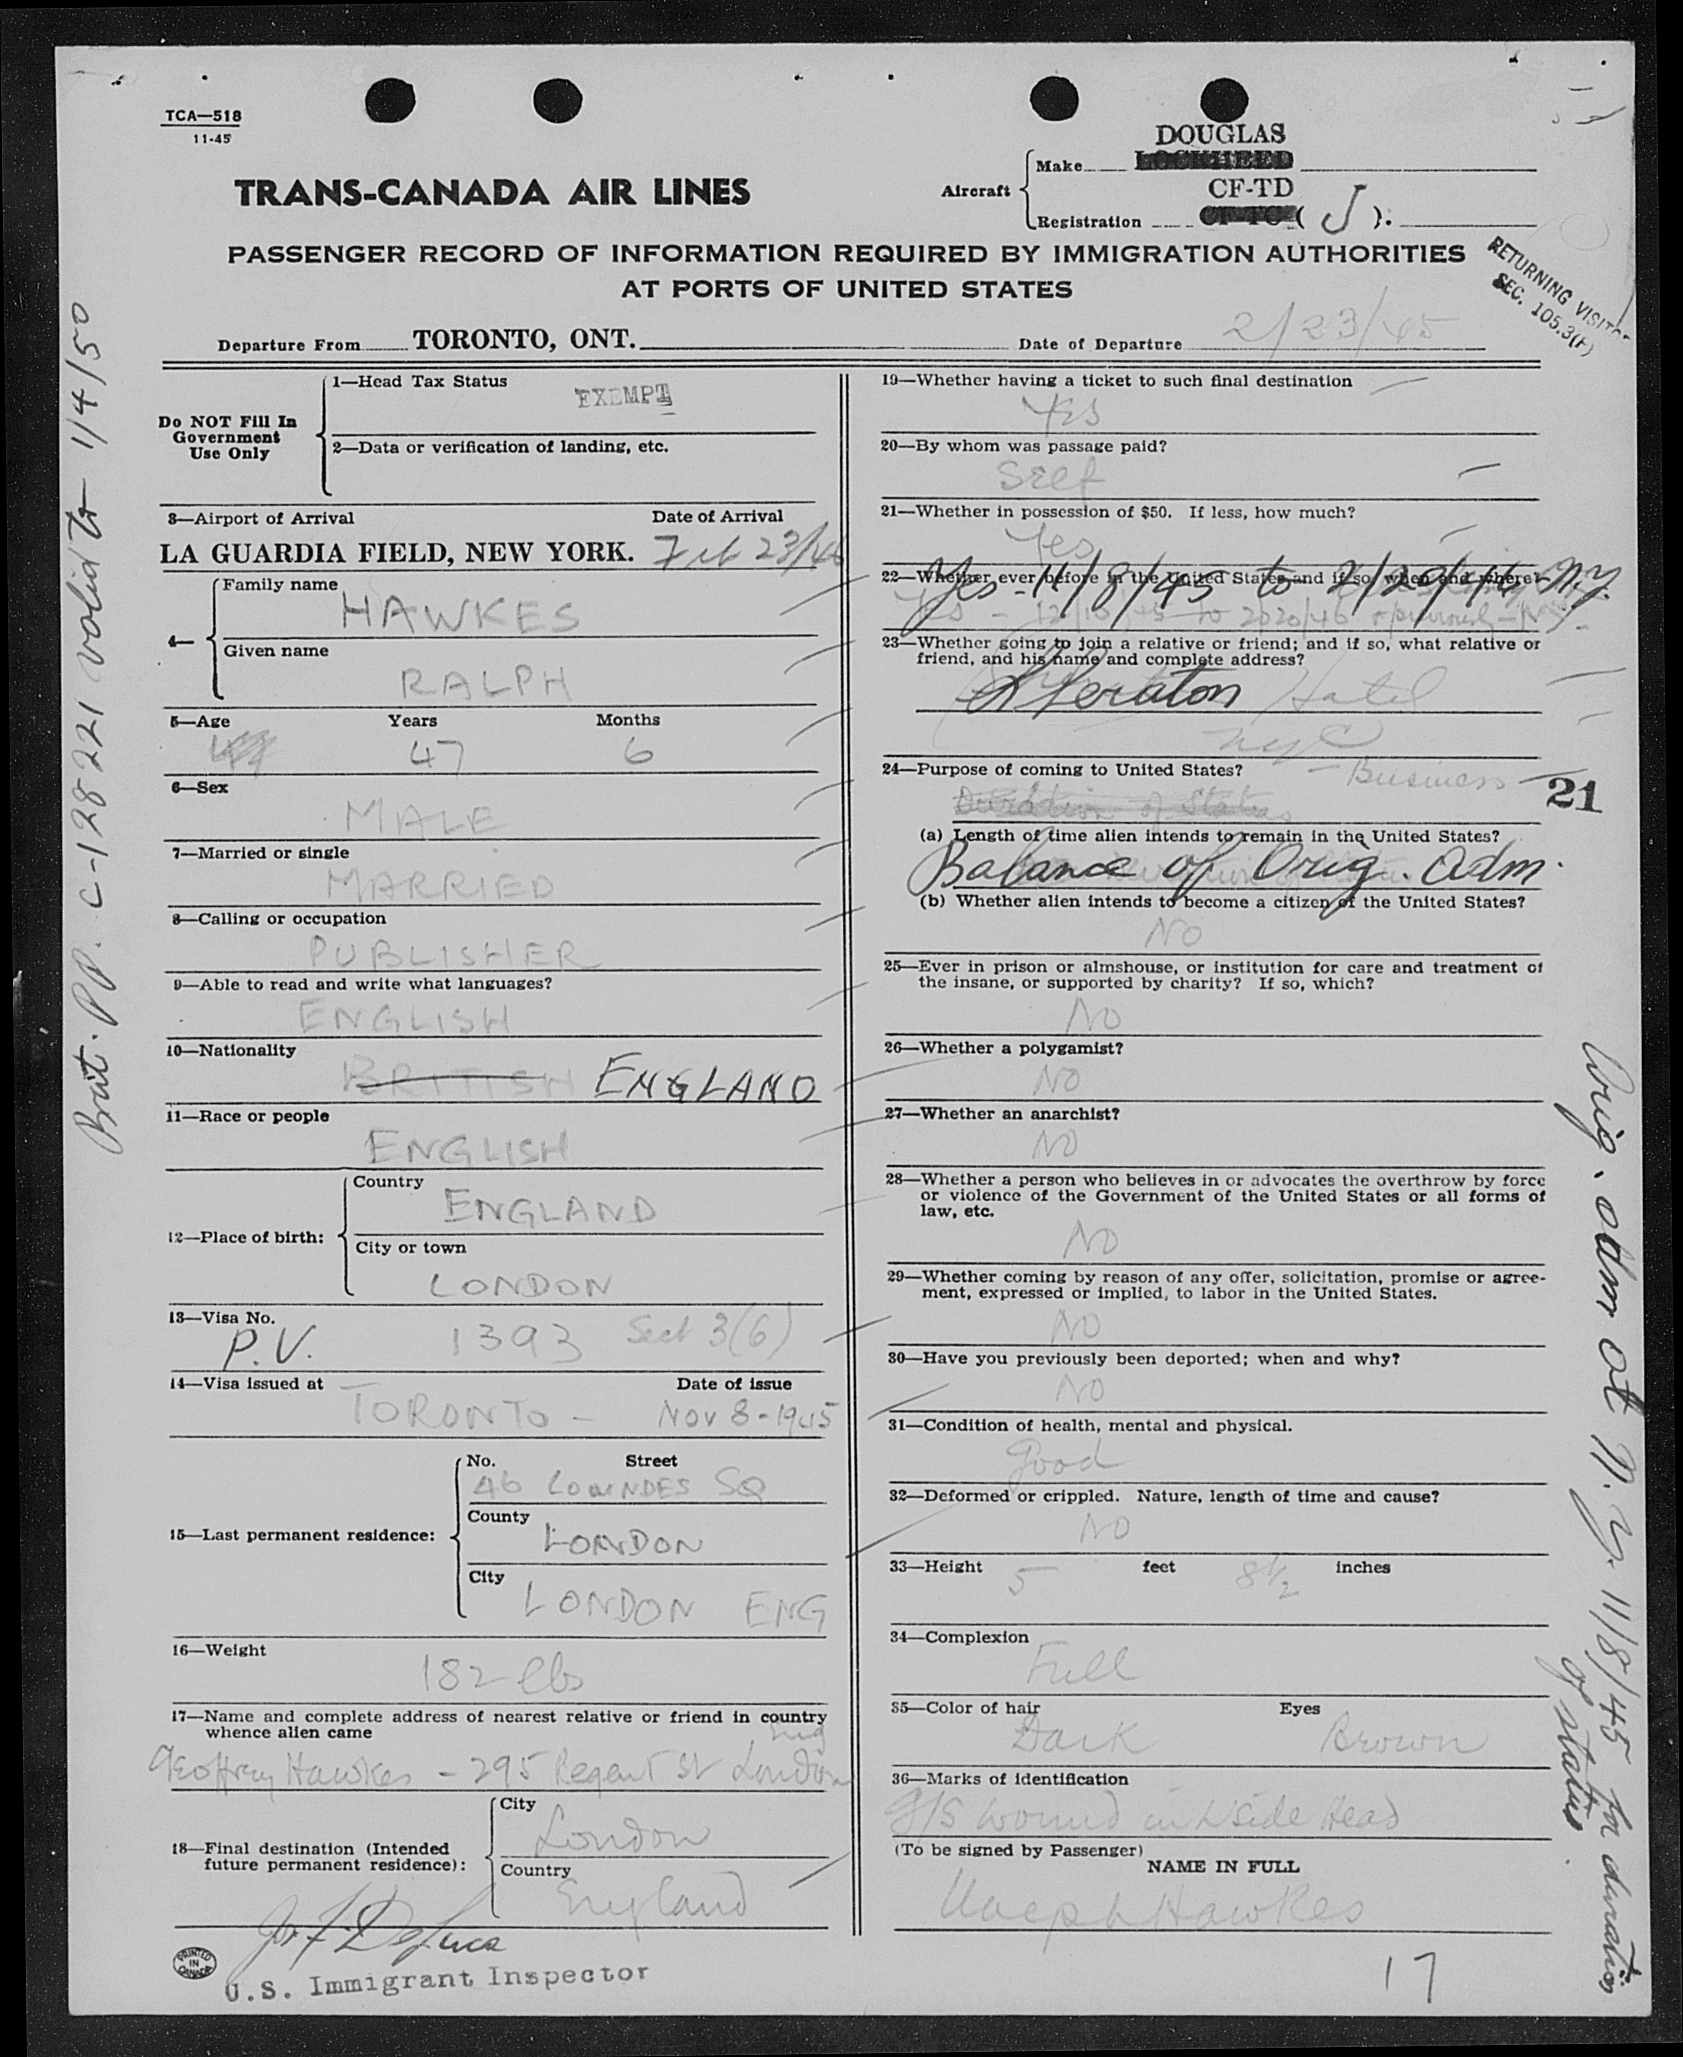 TCA—518
11-45
DOUGLAS
Make LOCKHEED
TRANS-CANADA AIR LINES
Aircraft
CF-TD
Registration CF-TC ( J ).
PASSENGER RECORD OF INFORMATION REQUIRED BY IMMIGRATION AUTHORITIES
AT PORTS OF UNITED STATES
RETURNING VISITOR
SEC. 105.3(F)
Departure From TORONTO, ONT. Date of Departure 2/23/45
Brit. PP. C-128221 valid to 1/4/50
Do NOT Fill In
Government
Use Only
1—Head Tax Status
EXEMPT
2—Data or verification of landing, etc.
3—Airport of Arrival Date of Arrival
LA GUARDIA FIELD, NEW YORK. Feb 23/46
4—
Family name
HAWKES
Given name
RALPH
5—Age Years Months
47 6
6—Sex
MALE
7—Married or single
MARRIED
8—Calling or occupation
PUBLISHER
9—Able to read and write what languages?
ENGLISH
10—Nationality
BRITISH ENGLAND
11—Race or people
ENGLISH
12—Place of birth:
Country
ENGLAND
City or town
LONDON
13—Visa No.
P.V. 1393 Sect 3(6)
14—Visa issued at Date of issue
TORONTO - NOV 8-1945
15—Last permanent residence:
No. Street
46 LOWNDES SQ
County
LONDON
City
LONDON ENG
16—Weight
182 lbs
17—Name and complete address of nearest relative or friend in country
whence alien came
Eng
Geoffrey Hawkes - 295 Regent St London
18—Final destination (Intended
future permanent residence):
City
London
Country
England
U.S. Immigrant Inspector
PRINTED
IN
CANADA
19—Whether having a ticket to such final destination
Yes
20—By whom was passage paid?
Self
21—Whether in possession of $50. If less, how much?
Yes
22—Whether ever before in the United States and if so, when and where?
Yes - 11/8/45 to 2/20/46 N.Y.
Yes - to 2/20/46 + previously - NY.
23—Whether going to join a relative or friend; and if so, what relative or
friend, and his name and complete address?
Sheraton Hotel
NYC
24—Purpose of coming to United States?
- Business
Duration of Status
21
(a) Length of time alien intends to remain in the United States?
Balance of Orig. Adm.
(b) Whether alien intends to become a citizen of the United States?
NO
25—Ever in prison or almshouse, or institution for care and treatment of
the insane, or supported by charity? If so, which?
NO
26—Whether a polygamist?
NO
27—Whether an anarchist?
NO
28—Whether a person who believes in or advocates the overthrow by force
or violence of the Government of the United States or all forms of
law, etc.
NO
29—Whether coming by reason of any offer, solicitation, promise or agree-
ment, expressed or implied, to labor in the United States.
NO
30—Have you previously been deported; when and why?
NO
31—Condition of health, mental and physical.
Good
32—Deformed or crippled. Nature, length of time and cause?
NO
33—Height 5 feet 8½ inches
34—Complexion
Full
35—Color of hair Eyes
Dark Brown
36—Marks of identification
G/S wound in L side Head
(To be signed by Passenger)
NAME IN FULL
Ralph Hawkes
17
Orig. adm at N.Y. 11/8/45 for duration
of status.